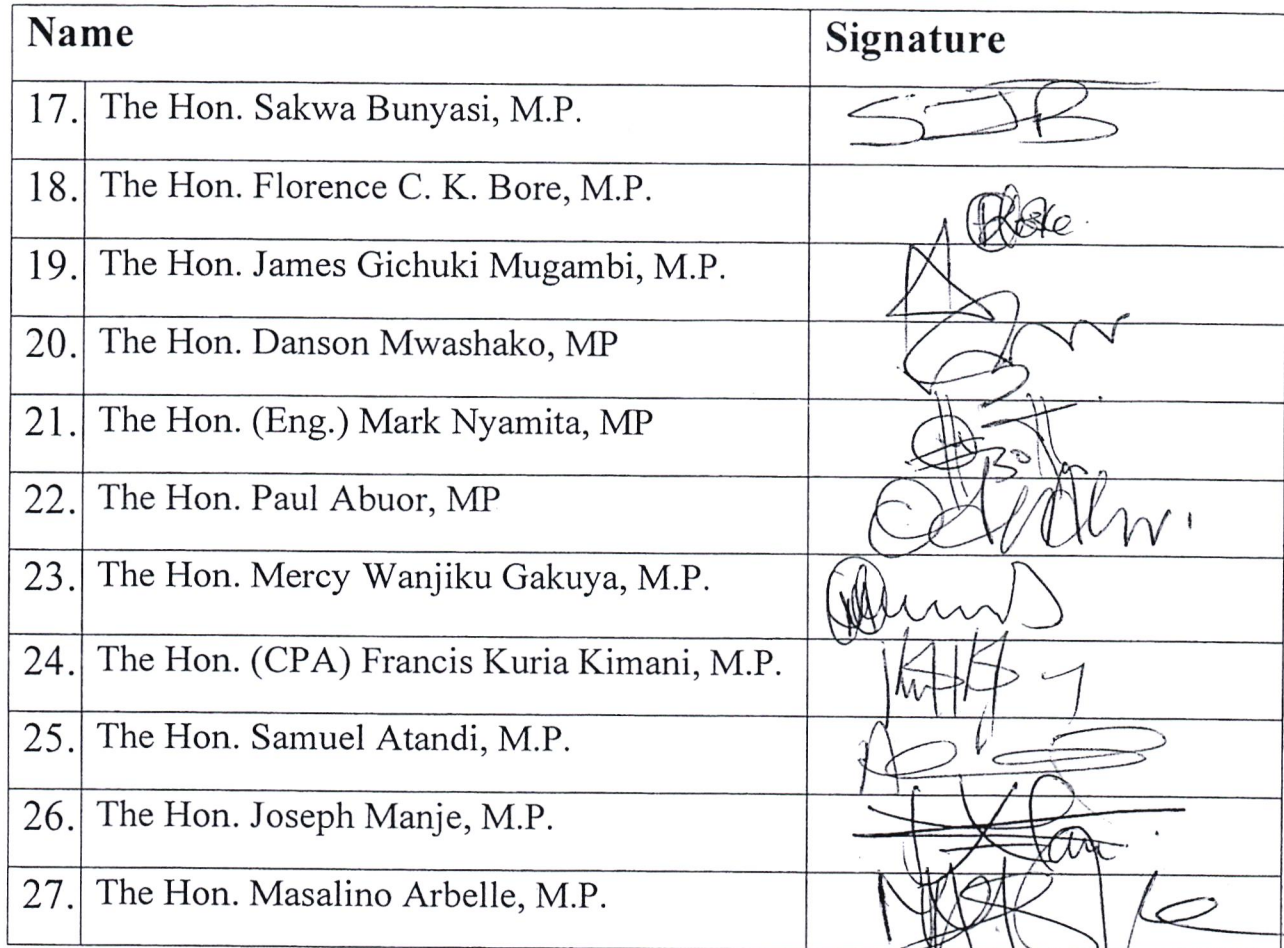 Name Signature
17. The Hon. Sakwa Bunyasi, M.P. SJB
18. The Hon. Florence C. K. Bore, M.P.
19. The Hon. James Gichuki Mugambi, M.P.
20. The Hon. Danson Mwashako, MP
21. The Hon. (Eng.) Mark Nyamita, MP
22. The Hon. Paul Abuor, MP
23. The Hon. Mercy Wanjiku Gakuya, M.P.
24. The Hon. (CPA) Francis Kuria Kimani, M.P.
25. The Hon. Samuel Atandi, M.P.
26. The Hon. Joseph Manje, M.P.
27. The Hon. Masalino Arbelle, M.P.